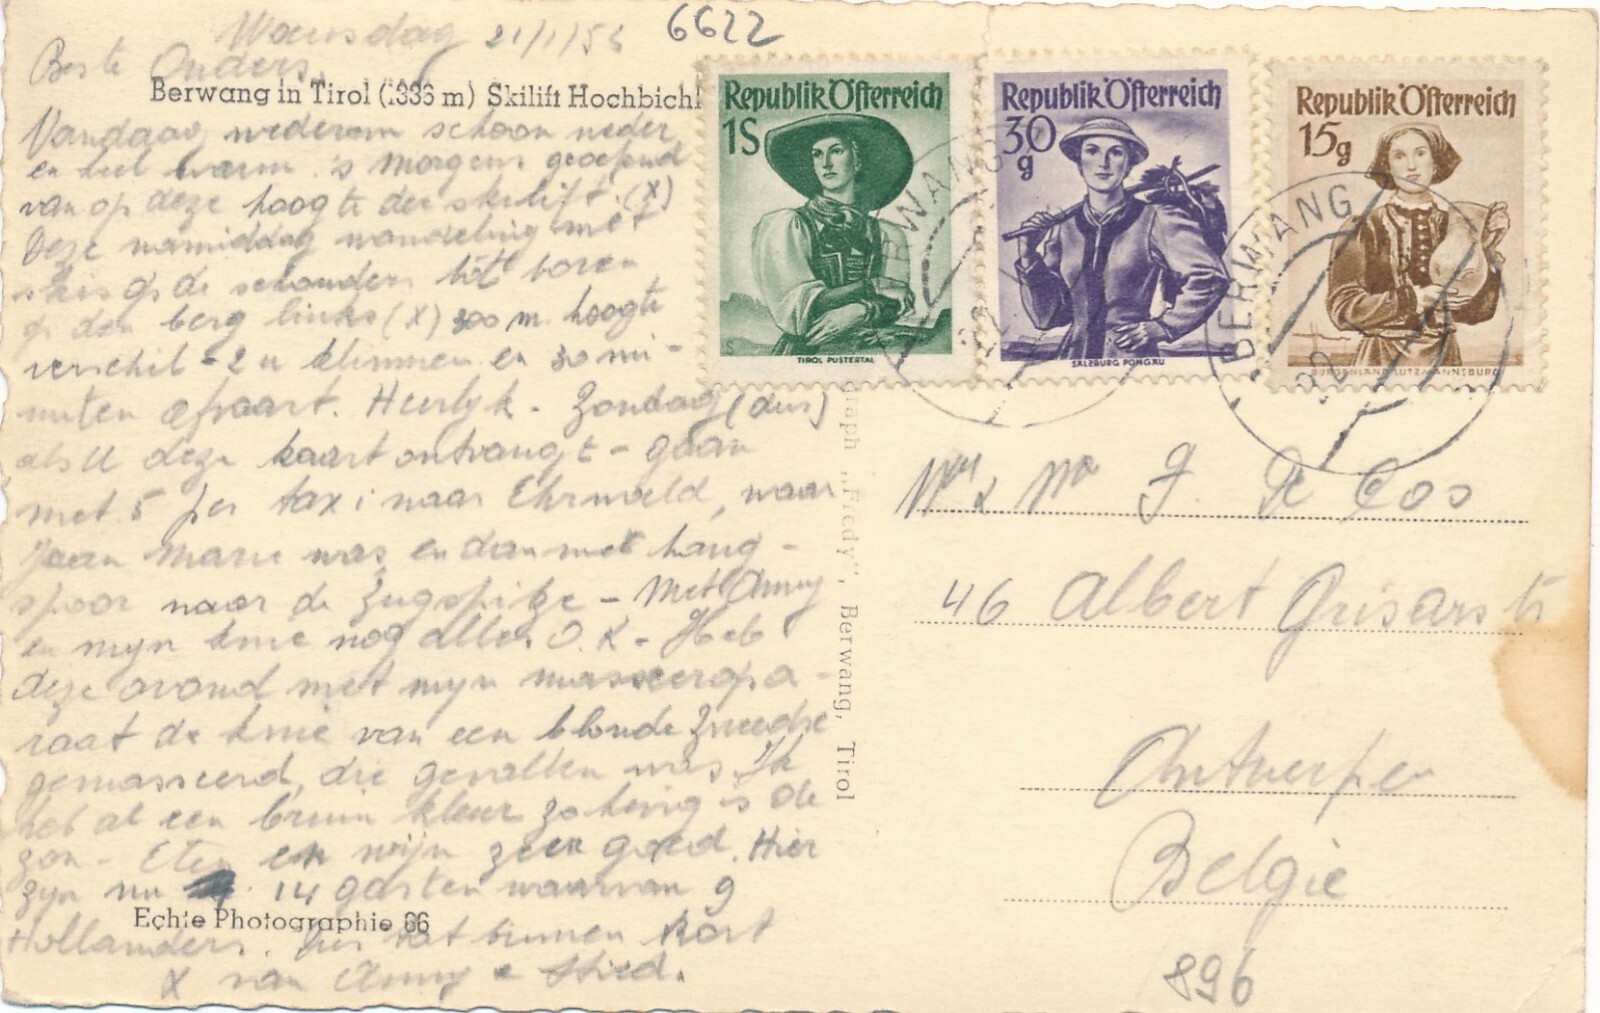 6622
Woensdag 21/1/53
Beste Ouders,
Berwang in Tirol (1336 m) Skilift Hochbichl
Vandaag wederom schoon weder
en heel warm. 's Morgens geoefend
van op deze hoogte der skilift. (X)
Deze namiddag wandeling met
skis op de schouders tot boven
op den berg links (X) 300 m. hoogte
verschil - 2 u klimmen en 30 mi-
nuten afvaart. Heerlyk. Zondag (dus)
als U deze kaart ontvangt - gaan
met 5 per taxi naar Ehrwald, waar
Jaan Marie was en dan met hang-
spoor naar de Zugspitze - Met Anny
en myn knie nog alles O.K. - Heb
deze avond met myn masseerapa-
raat de knie van een blonde Zweedse
gemasseerd, die gevallen was. Ik
heb al een bruin kleur zo hevig is de
zon. Eten en wijn zeer goed. Hier
zyn nu 14 gasten waarvan 9
Echte Photographie 66
Hollanders. tot binnen kort
X van Anny &
Republik Österreich
1S
TIROL PUSTERTAL
Republik Österreich
30 g
SALZBURG PONGAU
Republik Österreich
15 g
BURGENLAND LUTZMANNSBURG
BERWANG
22
BERWANG
22
graph „Fredy", Berwang, Tirol
Mr & Me J. De Cos
46 Albert Grisarstr
Antwerpen
België
896